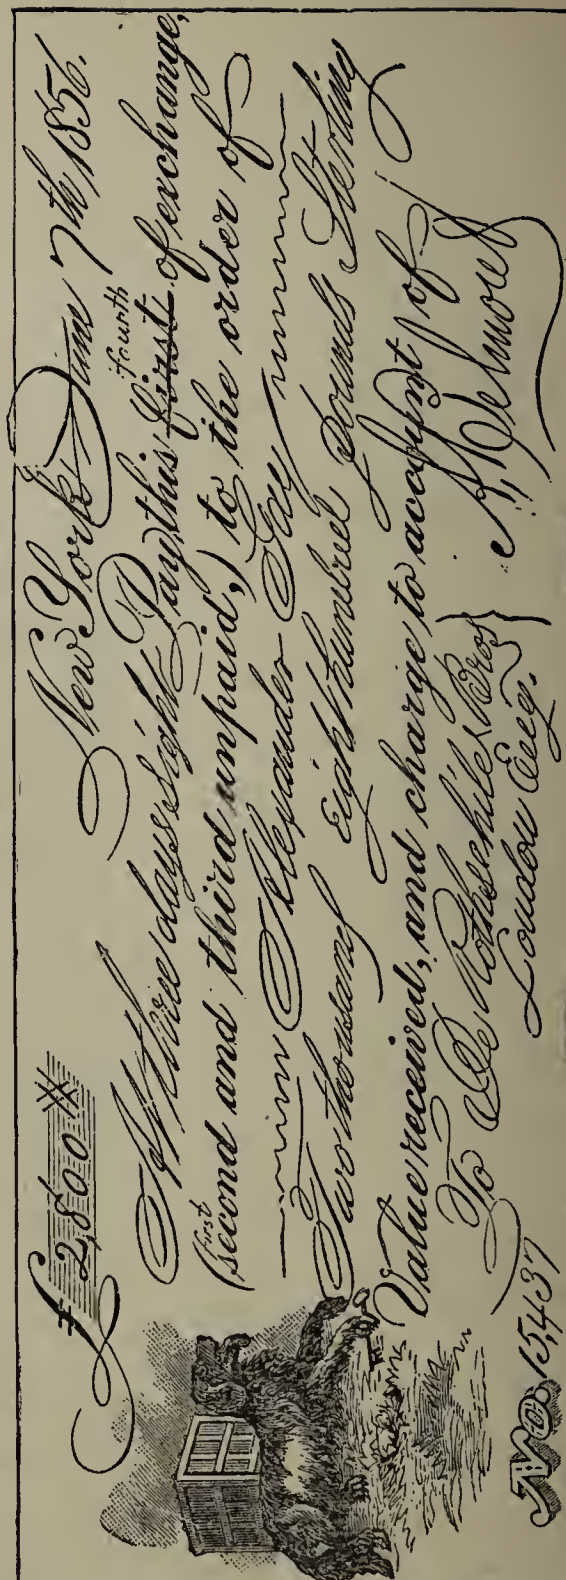 £ 2,800
New York June 7th 1856.
At three days sight Pay this first fourth of exchange,
(first second and third unpaid,) to the order of
Alexander Gay
Two thousand Eight hundred Pounds Sterling
Value received, and charge to account of
To Rothschild & Bros
London Eng.
No. 15,437